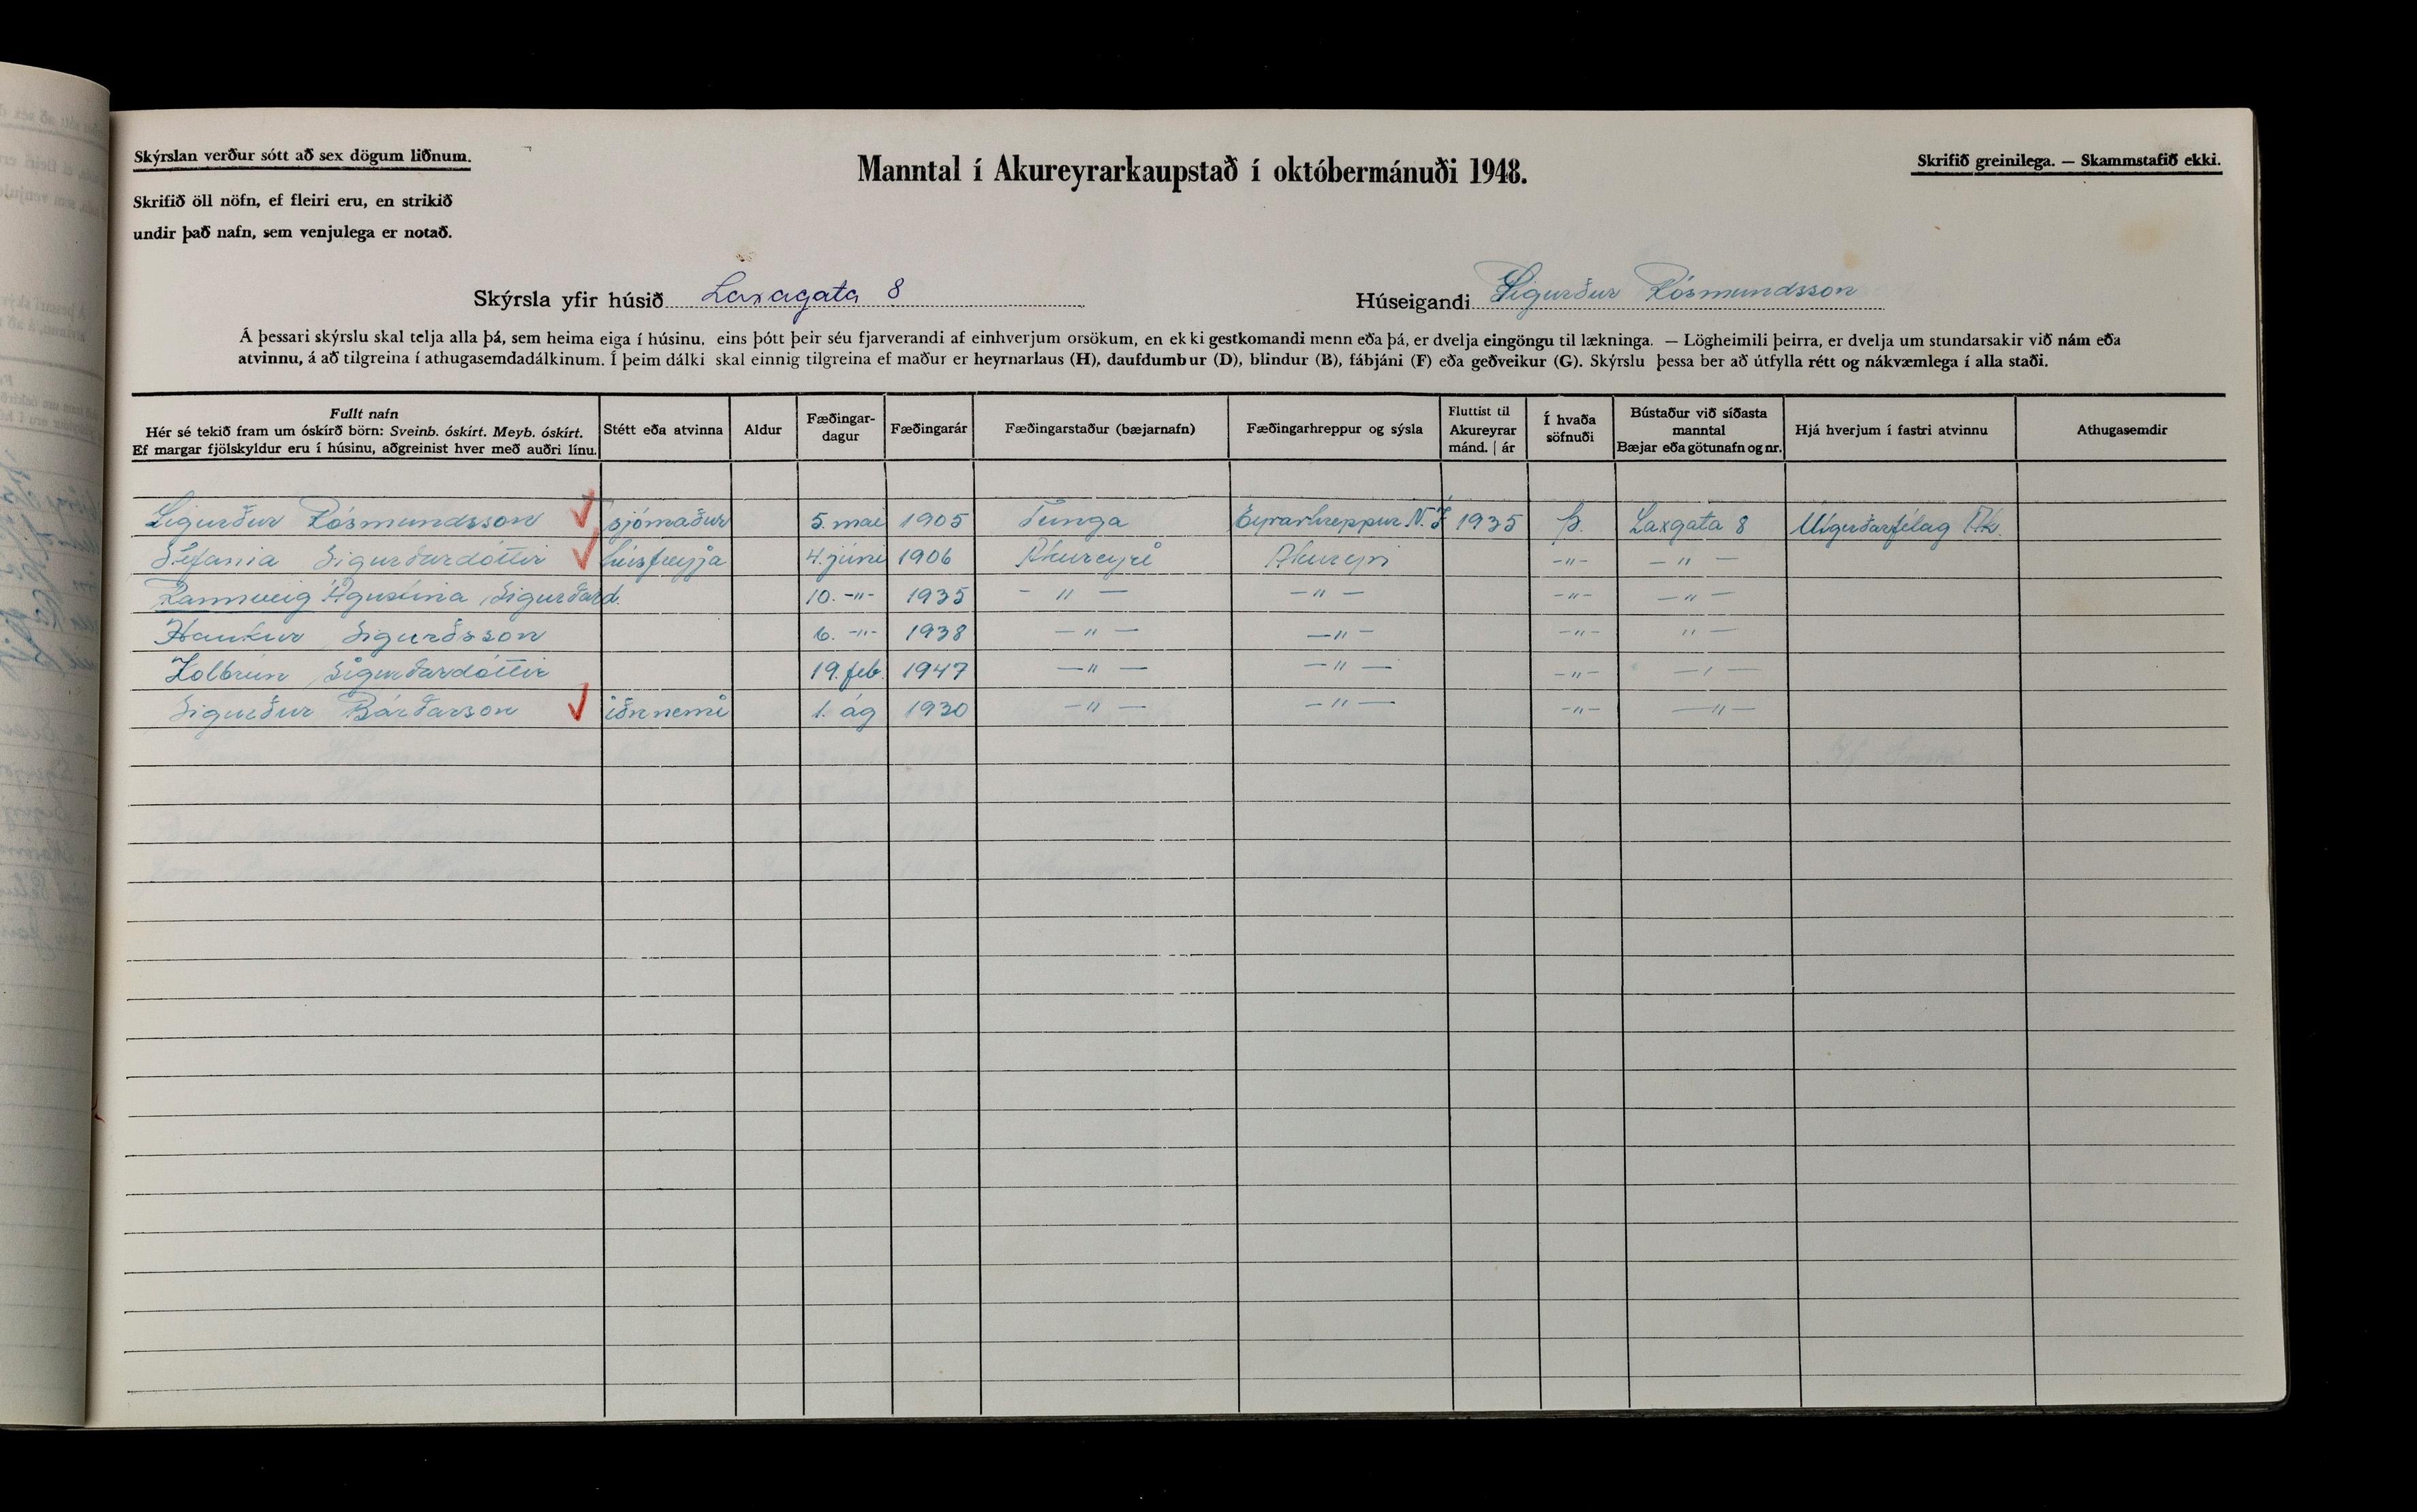 Skýrslan verður sótt að sex dögum liðnum.
Manntal í Akureyrarkaupstað í októbermánuði 1948.
Skrifið greinilega. — Skammstafið ekki.
Skrifið öll nöfn, ef fleiri eru, en strikið
undir það nafn, sem venjulega er notað.
Skýrsla yfir húsið Laxagata 8
Húseigandi Sigurður Rósmundsson
Á þessari skýrslu skal telja alla þá, sem heima eiga í húsinu, eins þótt þeir séu fjarverandi af einhverjum orsökum, en ekki gestkomandi menn eða þá, er dvelja eingöngu til lækninga. — Lögheimili þeirra, er dvelja um stundarsakir við nám eða
atvinnu, á að tilgreina í athugasemdadálkinum. Í þeim dálki skal einnig tilgreina ef maður er heyrnarlaus (H), daufdumbur (D), blindur (B), fábjáni (F) eða geðveikur (G). Skýrslu þessa ber að útfylla rétt og nákvæmlega í alla staði.
Fullt nafn
Hér sé tekið fram um óskírð börn: Sveinb. óskírt. Meyb. óskírt.
Ef margar fjölskyldur eru í húsinu, aðgreinist hver með auðri línu.
Stétt eða atvinna
Aldur
Fæðingar-
dagur
Fæðingarár
Fæðingarstaður (bæjarnafn)
Fæðingarhreppur og sýsla
Fluttist til
Akureyrar
mánd. | ár
Í hvaða
söfnuði
Bústaður við síðasta
manntal
Bæjar eða götunafn og nr.
Hjá hverjum í fastri atvinnu
Athugasemdir
Sigurður Rósmundsson sjómaður 5. maí 1905 Tunga Eyrarhreppur N. Í 1935 Þ. Laxgata 8 Útgerðarfélag Ak.
Stefania Sigurðardóttir húsfreyja 4. júní 1906 Akureyri Akureyri -"- — " —
Rannveig Ágústína Sigurðard. 10. -"- 1935 - " — — " — -"- — " —
Haukur Sigurðsson 6. -"- 1938 — " — — " — -"- " —
Kolbrún Sigurðardóttir 19. feb. 1947 — " — — " — -"- — " —
Sigurður Bárðarson iðnnemi 1. ág 1930 — " — — " — -"- — " —